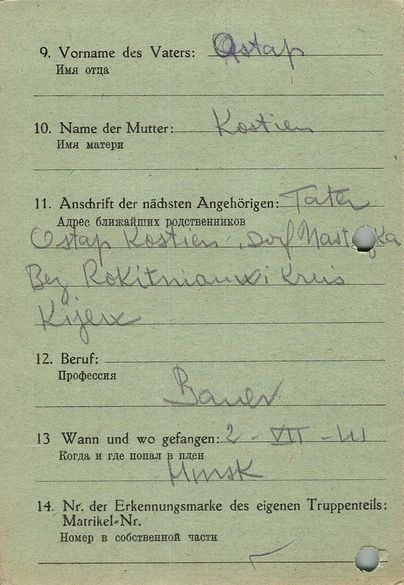 9. Vorname des Vaters: Ostap
Имя отца
10. Name der Mutter: Kostien
Имя матери
11. Anschrift der nächsten Angehörigen: Tater
Адрес ближайших родственников
Ostap Kostien, Dorf
Bez Rokitnianxi Kreis
Kijex
12. Beruf:
Профессия
Bauer
13 Wann und wo gefangen: 2 - VII - 41
Когда и где попал в плен
Minsk
14. Nr. der Erkennungsmarke des eigenen Truppenteils:
Matrikel-Nr.
Номер в собственной части